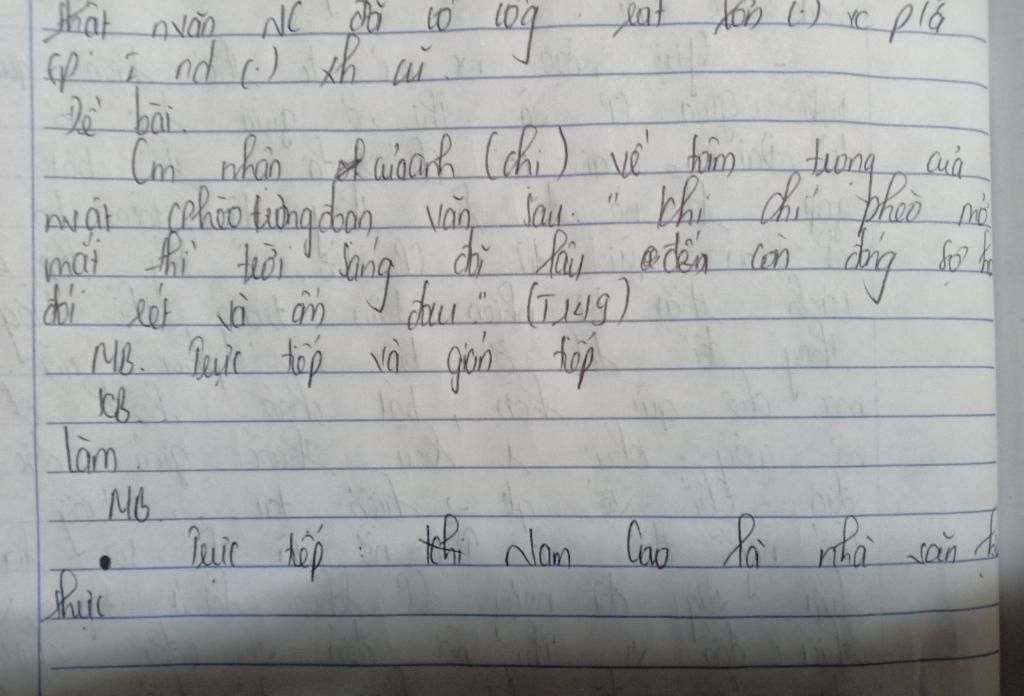 thật nvăn NC đã có lòg xót (.) vc p/á
cp ì nd (.) xh cũ.
Đề bài.
Cm nhận của anh (chị) về tâm trạng của
nvật cphèo trong đoạn văn sau. "Khi chí phèo mở
mắt thì trời sáng đã lâu đến còn đóng
đói rét và ốm đau" (T149)
MB. Trực tiếp và gián tiếp
KB.
làm.
MB
• Trực tiếp: Nam Cao là nhà văn
thực